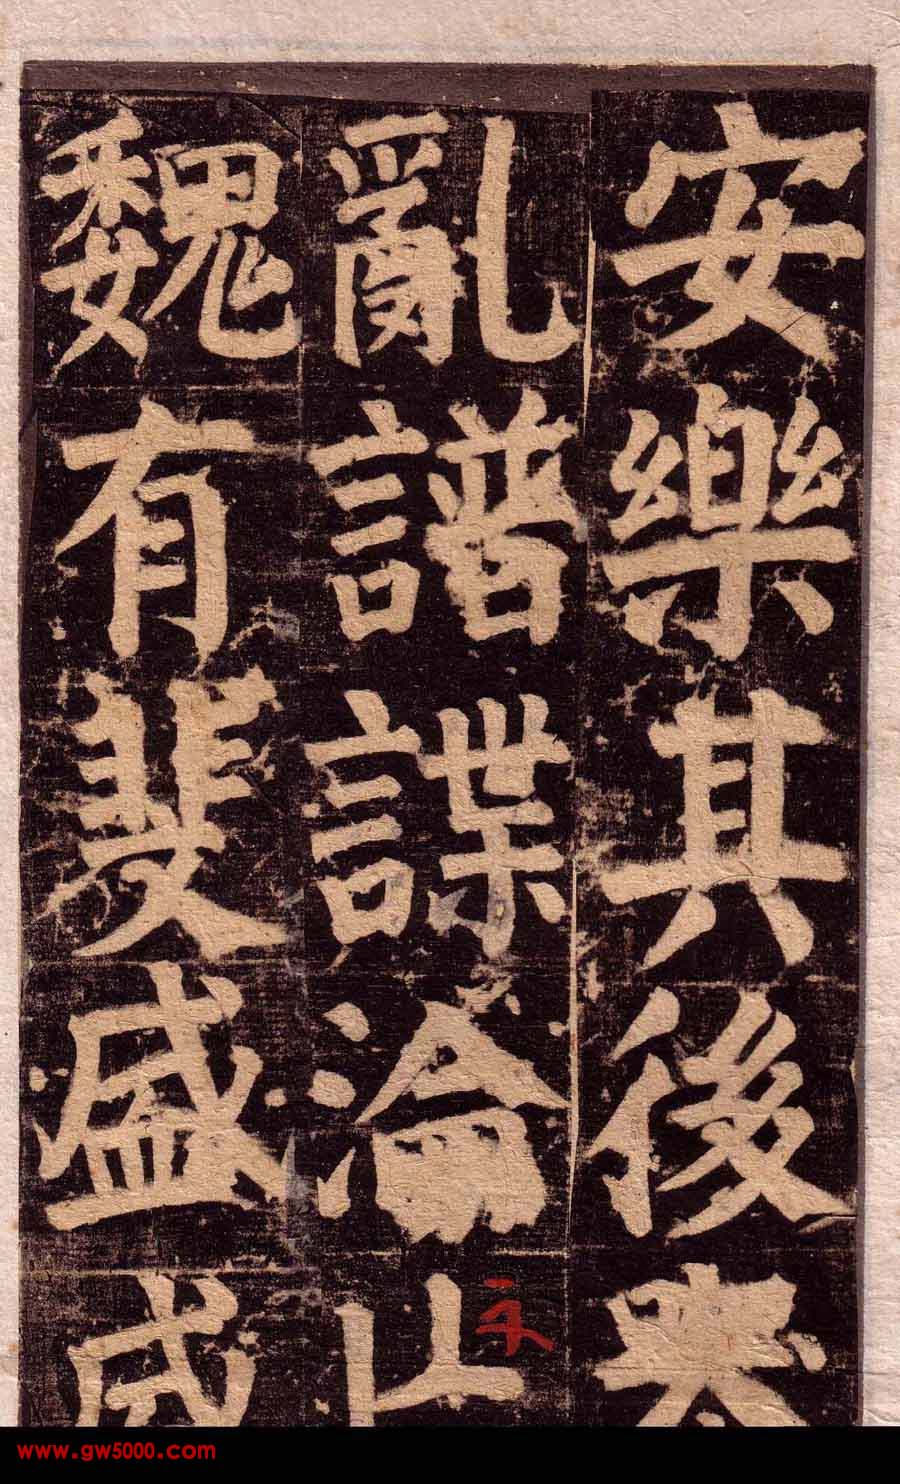 安樂其後
亂譜諜淪
魏有斐盛
www.gw5000.com